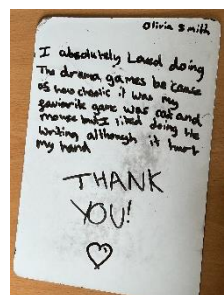 Olivia Smith
I absolutely Loved doing
The drama games because
of how chaotic it was my
favourite game was cat and
mouse but I liked doing the
writing although it hurt
my hand
THANK
YOU!